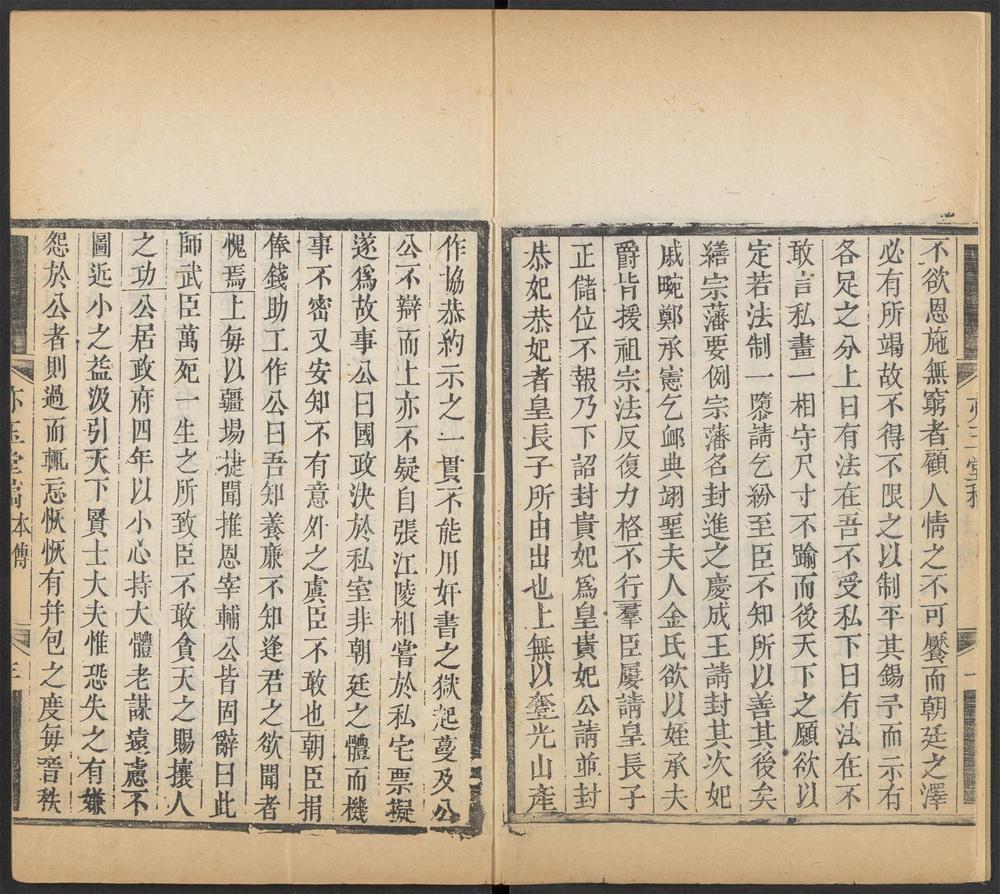 不欲恩施無窮者顧人情之不可饜而朝廷之澤
必有所竭故不得不限之以制平其錫予而示有
各足之分上曰有法在吾不受私下曰有法在不
敢言私畫一相守尺寸不踰而後天下之願欲以
定若法制一隳請乞紛至臣不知所以善其後矣
繕宗藩要例宗藩名封進之慶成王請封其次妃
戚畹鄭承憲乞卹典翊聖夫人金氏欲以姪承夫
爵皆援祖宗法反復力格不行羣臣屢請皇長子
正儲位不報乃下詔封貴妃爲皇貴妃公請並封
恭妃恭妃者皇長子所由出也上無以奪光山產
作協恭約示之一貫不能用奸書之獄起蔓及公
公不辯而上亦不疑自張江陵相嘗於私宅票擬
遂爲故事公曰國政決於私室非朝廷之體而機
事不密又安知不有意外之虞臣不敢也朝臣捐
俸錢助工作公曰吾知養廉不知逢君之欲聞者
愧焉上每以疆場捷聞推恩宰輔公皆固辭曰此
師武臣萬死一生之所致臣不敢貪天之賜攘人
之功公居政府四年以小心持大體老謀遠慮不
圖近小之益汲引天下賢士大夫惟恐失之有嫌
怨於公者則過而輒忘恢恢有幷包之度每晉秩
亦玉堂稿 本傳 三